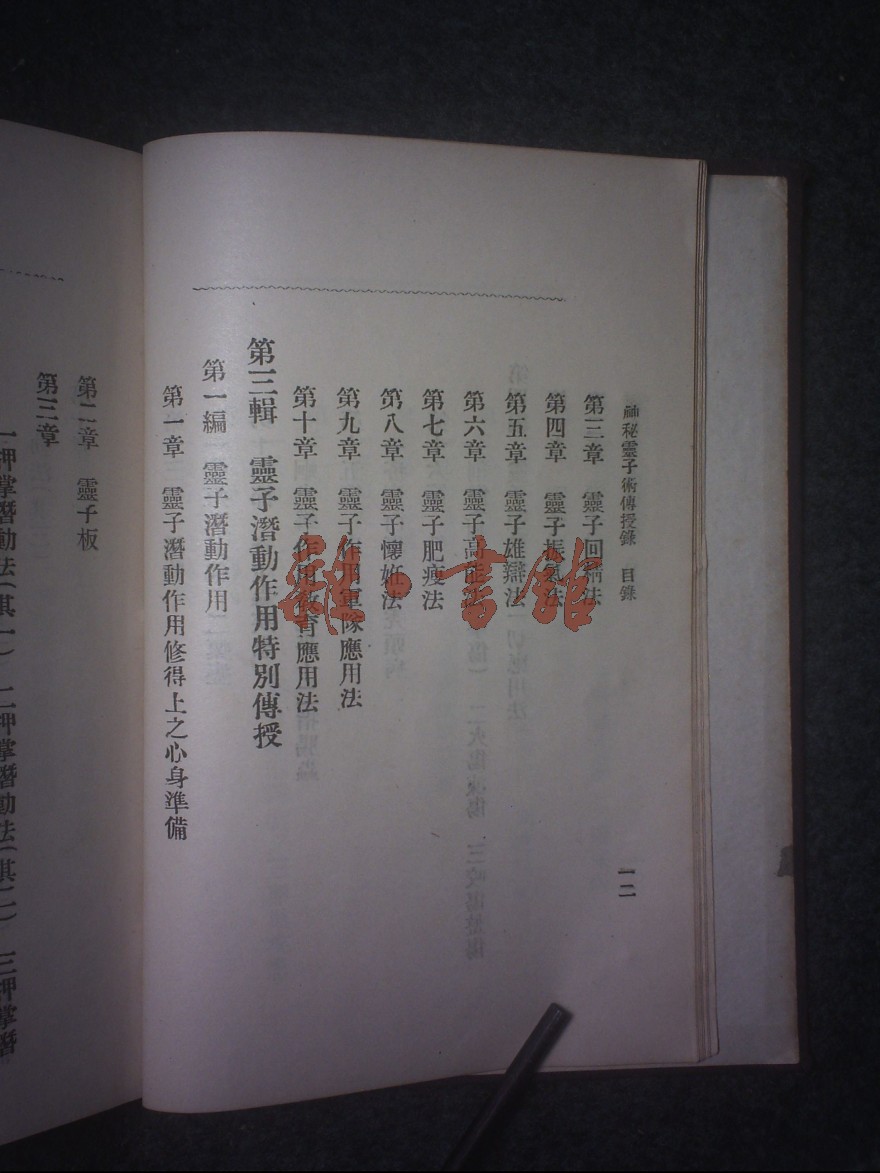 神秘靈子術傳授錄 目錄
一二
第三章 靈子回 法
第四章 靈子 氣法
第五章 靈子雄辯法
第六章 靈子高 法
第七章 靈子肥瘦法
第八章 靈子懷妊法
第九章 靈子作用軍隊應用法
第十章 靈子作用教育應用法
第三輯 靈子潛動作用特別傳授
第一編 靈子潛動作用
第一章 靈子潛動作用修得上之心身準備
第二章 靈子板
第三章
一押掌潛動法(其一) 二押掌潛動法(其二) 三押掌潛
雜·書館